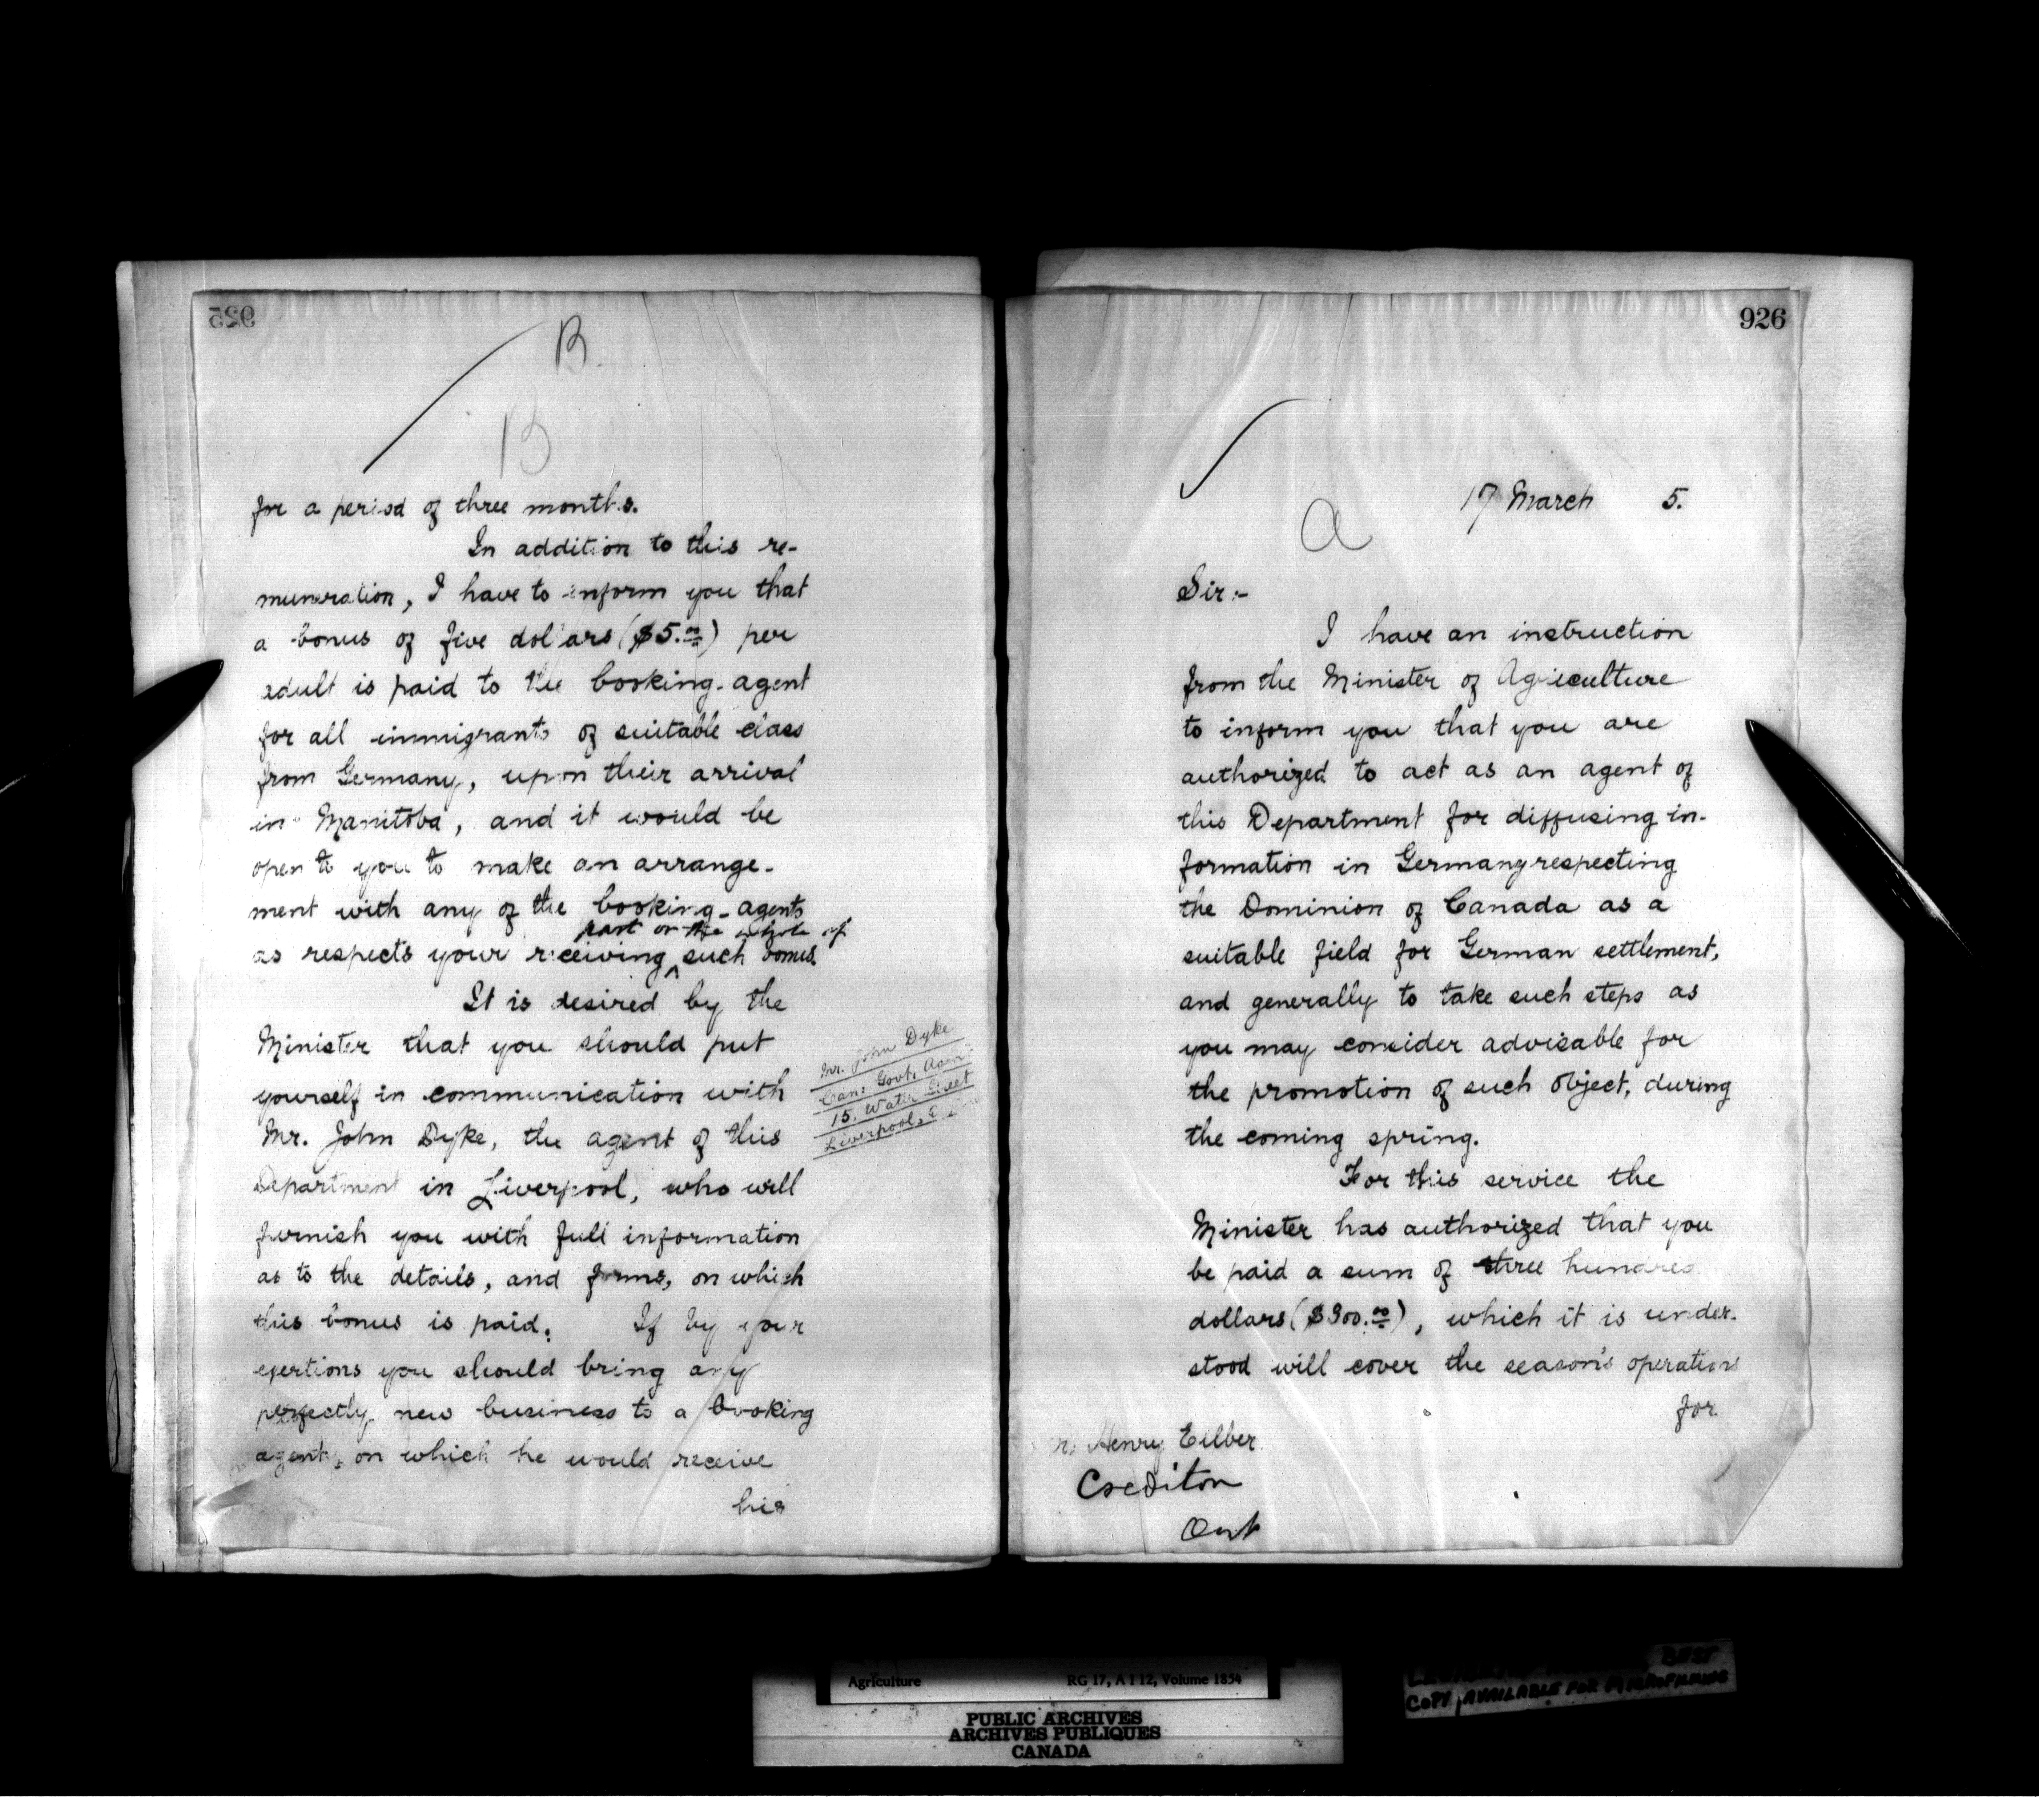 925
B.
B
for a period of three months.
In addition to this re-
muneration, I have to inform you that
a bonus of five dollars ($5.00) per
adult is paid to the booking-agent
for all immigrants of suitable class
from Germany, upon their arrival
in Manitoba, and it would be
open to you to make an arrange-
ment with any of the booking-agents
part or the whole of
as respects your receiving ^ such bonus.
It is desired by the
Minister that you should put
yourself in communication with
Mr. John Dyke, the agent of this
Department in Liverpool, who will
furnish you with full information
as to the details, and forms, on which
this bonus is paid. If by your
exertions you should bring any
perfectly new business to a booking
agent, on which he would receive
his
Mr. John Dyke
Can: Govt. Agent
15. Water Street
Liverpool, E
926
17 March 5.
a
Sir:-
I have an instruction
from the Minister of Agriculture
to inform you that you are
authorized to act as an agent of
this Department for diffusing in-
formation in Germany respecting
the Dominion of Canada as a
suitable field for German settlement,
and generally to take such steps as
you may consider advisable for
the promotion of such object, during
the coming spring.
For this service the
Minister has authorized that you
be paid a sum of three hundred
dollars ($300.00), which it is under-
stood will cover the season's operations
for
Henry Eilber
Crediton
Ont
Agriculture RG 17, A I 12, Volume 1854
PUBLIC ARCHIVES
ARCHIVES PUBLIQUES
CANADA
BEST
COPY AVAILABLE FOR MICROFILMING